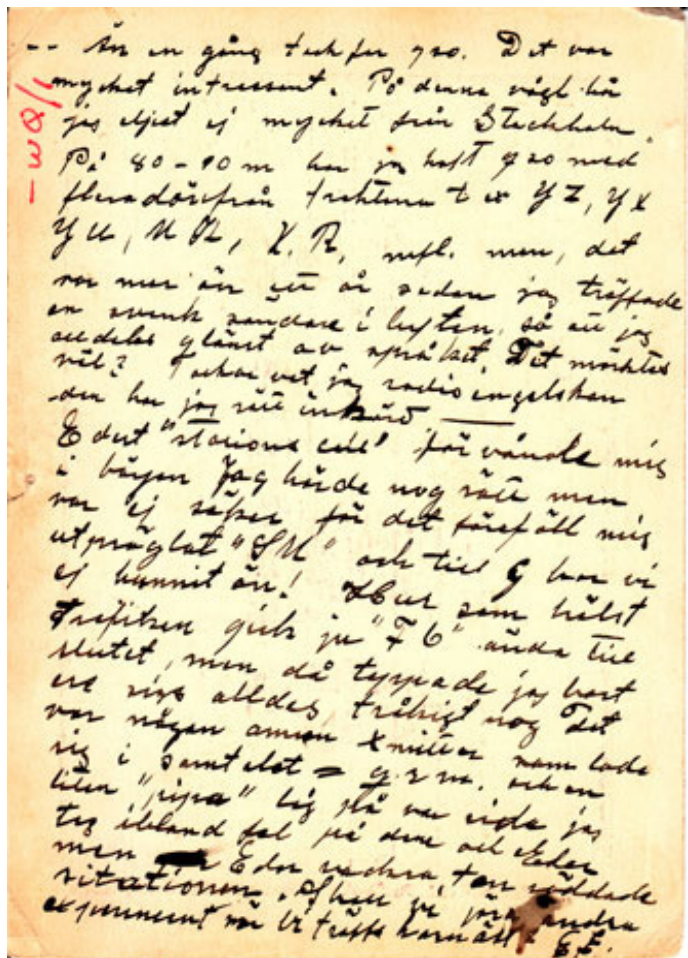 -- Än en gång tack för qso. Det var
mycket intressant. På denna vågl. har
jag eljest ej mycket från Stockholm.
På 80-90 m har jag haft qso med
flera därifrån trakterna t ex YZ, YX
YU, UR, X.R, mfl. men, det
var mer än ett år sedan jag träffade
en svensk sändare i luften, så att jag
alldeles glömt av språket. Det märktes
väl? Tackar vet jag radioengelskan
den har jag rätt inkörd ——
Edert "stations call" förvånade mig
i början Jag hörde nog rätt men
var ej säker för det föreföll mig
utpräglat "SM" och till G har vi
ej hunnit än! Hur som hälst
Trafiken gick ju "FB" ända till
slutet, men då tappade jag bort
er alldeles, tråkigt nog Det
var någon annan Xmitter som lade
sig i samtalet = q.r.m. och en
liten "pipa" låg på var sida jag
tog ibland fel på den och Eder
men Eder vackra ton räddade
sitationen. Skall vi göra andra
experiment när vi träffs
- WQ/1